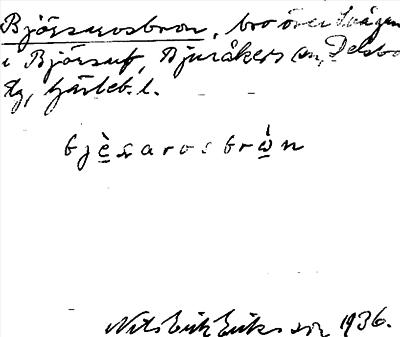 Björsarosbron, bro över Svågan
i Björsarf, Bjuråkers sn, Delsbo
tg, Gävleb. l.
bjèsarosbrò̱n
Nils Erik Eriksson 1936.